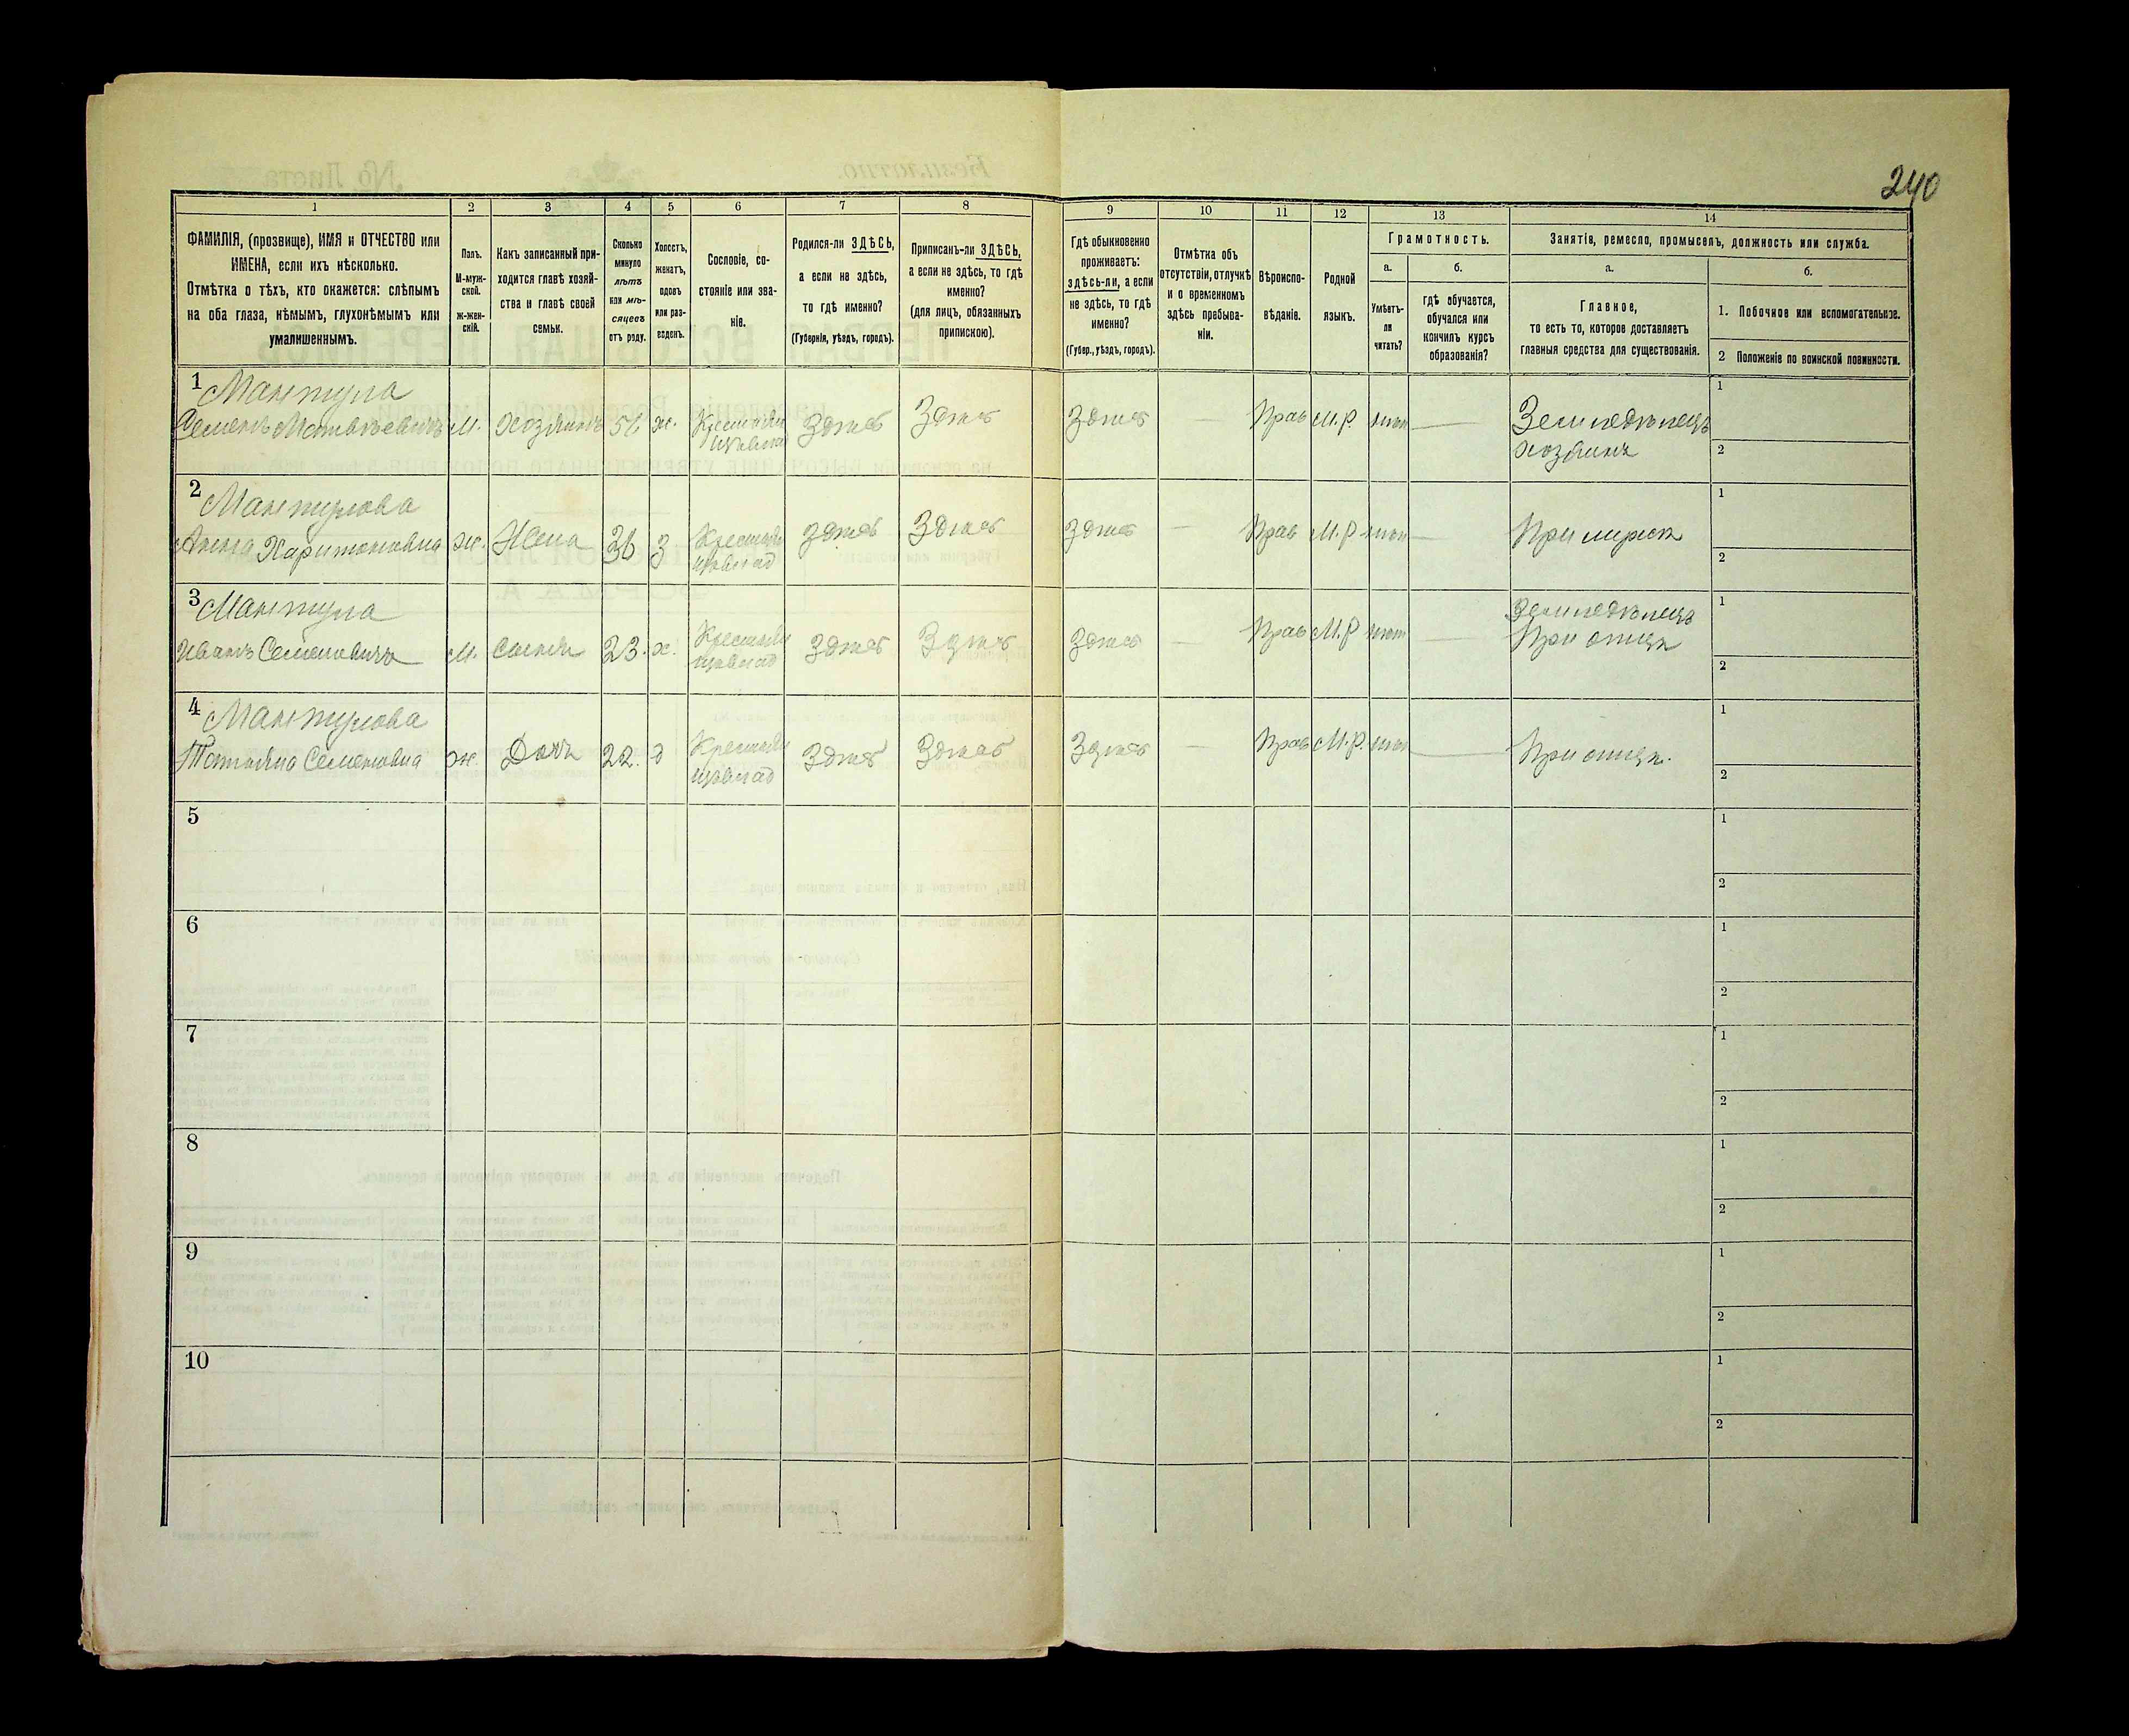 240
1
2
3
4
5
6
7
8
9
10
11
12
13
14
ФАМИЛІЯ, (прозвище), ИМЯ и ОТЧЕСТВО или
ИМЕНА, если ихъ нѣсколько.
Отмѣтка о тѣхъ, кто окажется: слѣпымъ
на оба глаза, нѣмымъ, глухонѣмымъ или
умалишеннымъ.
Полъ.
М-муж-
ской.
Ж-жен-
скій.
Какъ записанный при-
ходится главѣ хозяй-
ства и главѣ своей
семьи.
Сколько
минуло
лѣтъ
или мѣ-
сяцевъ
отъ роду.
Холостъ,
женатъ,
вдовъ
или раз-
веденъ.
Сословіе, со-
стояніе или зва-
ніе.
Родился-ли ЗДѢСЬ,
а если не здѣсь,
то гдѣ именно?
(Губернія, уѣздъ, городъ).
Приписанъ-ли ЗДѢСЬ,
а если не здѣсь, то гдѣ
именно?
(для лицъ, обязанныхъ
припискою).
Гдѣ обыкновенно
проживаетъ:
здѣсь-ли, а если
не здѣсь, то гдѣ
именно?
(Губер., уѣздъ, городъ).
Отмѣтка объ
отсутствіи, отлучкѣ
и о временномъ
здѣсь пребыва-
ніи.
Вѣроиспо-
вѣданіе.
Родной
языкъ.
Грамотность.
а.
б.
Умѣетъ-
ли
читать?
гдѣ обучается,
обучался или
кончилъ курсъ
образованія?
Занятія, ремесло, промыселъ, должность или служба.
а.
б.
Главное,
то есть то, которое доставляетъ
главныя средства для существованія.
1. Побочное или вспомогательное.
2 Положеніе по воинской повинности.
1 Мантула
Семенъ Матвѣевичъ м. Хозяинъ ж. Здѣсь Здѣсь Здѣсь — Прав М.Р. нѣт — Земледѣлецъ
хозяинъ
1
2
2 Мантулова
Анна Харитоновна ж. Жена 36 З Здѣсь Здѣсь Здѣсь — Прав М.Р нѣт —
1
2
3 Мантула
Иванъ Семеновичъ м. Сынъ 23. х. Здѣсь Здѣсь Здѣсь — Прав М.Р нѣт — Земледѣлецъ
При отцѣ
1
2
4 Мантулова
Татьяна Семеновна ж. Дочь 22. д Здѣсь Здѣсь Здѣсь — Прав М.Р. нѣт — При отцѣ.
1
2
5
1
2
6
1
2
7
1
2
8
1
2
9
1
2
10
1
2